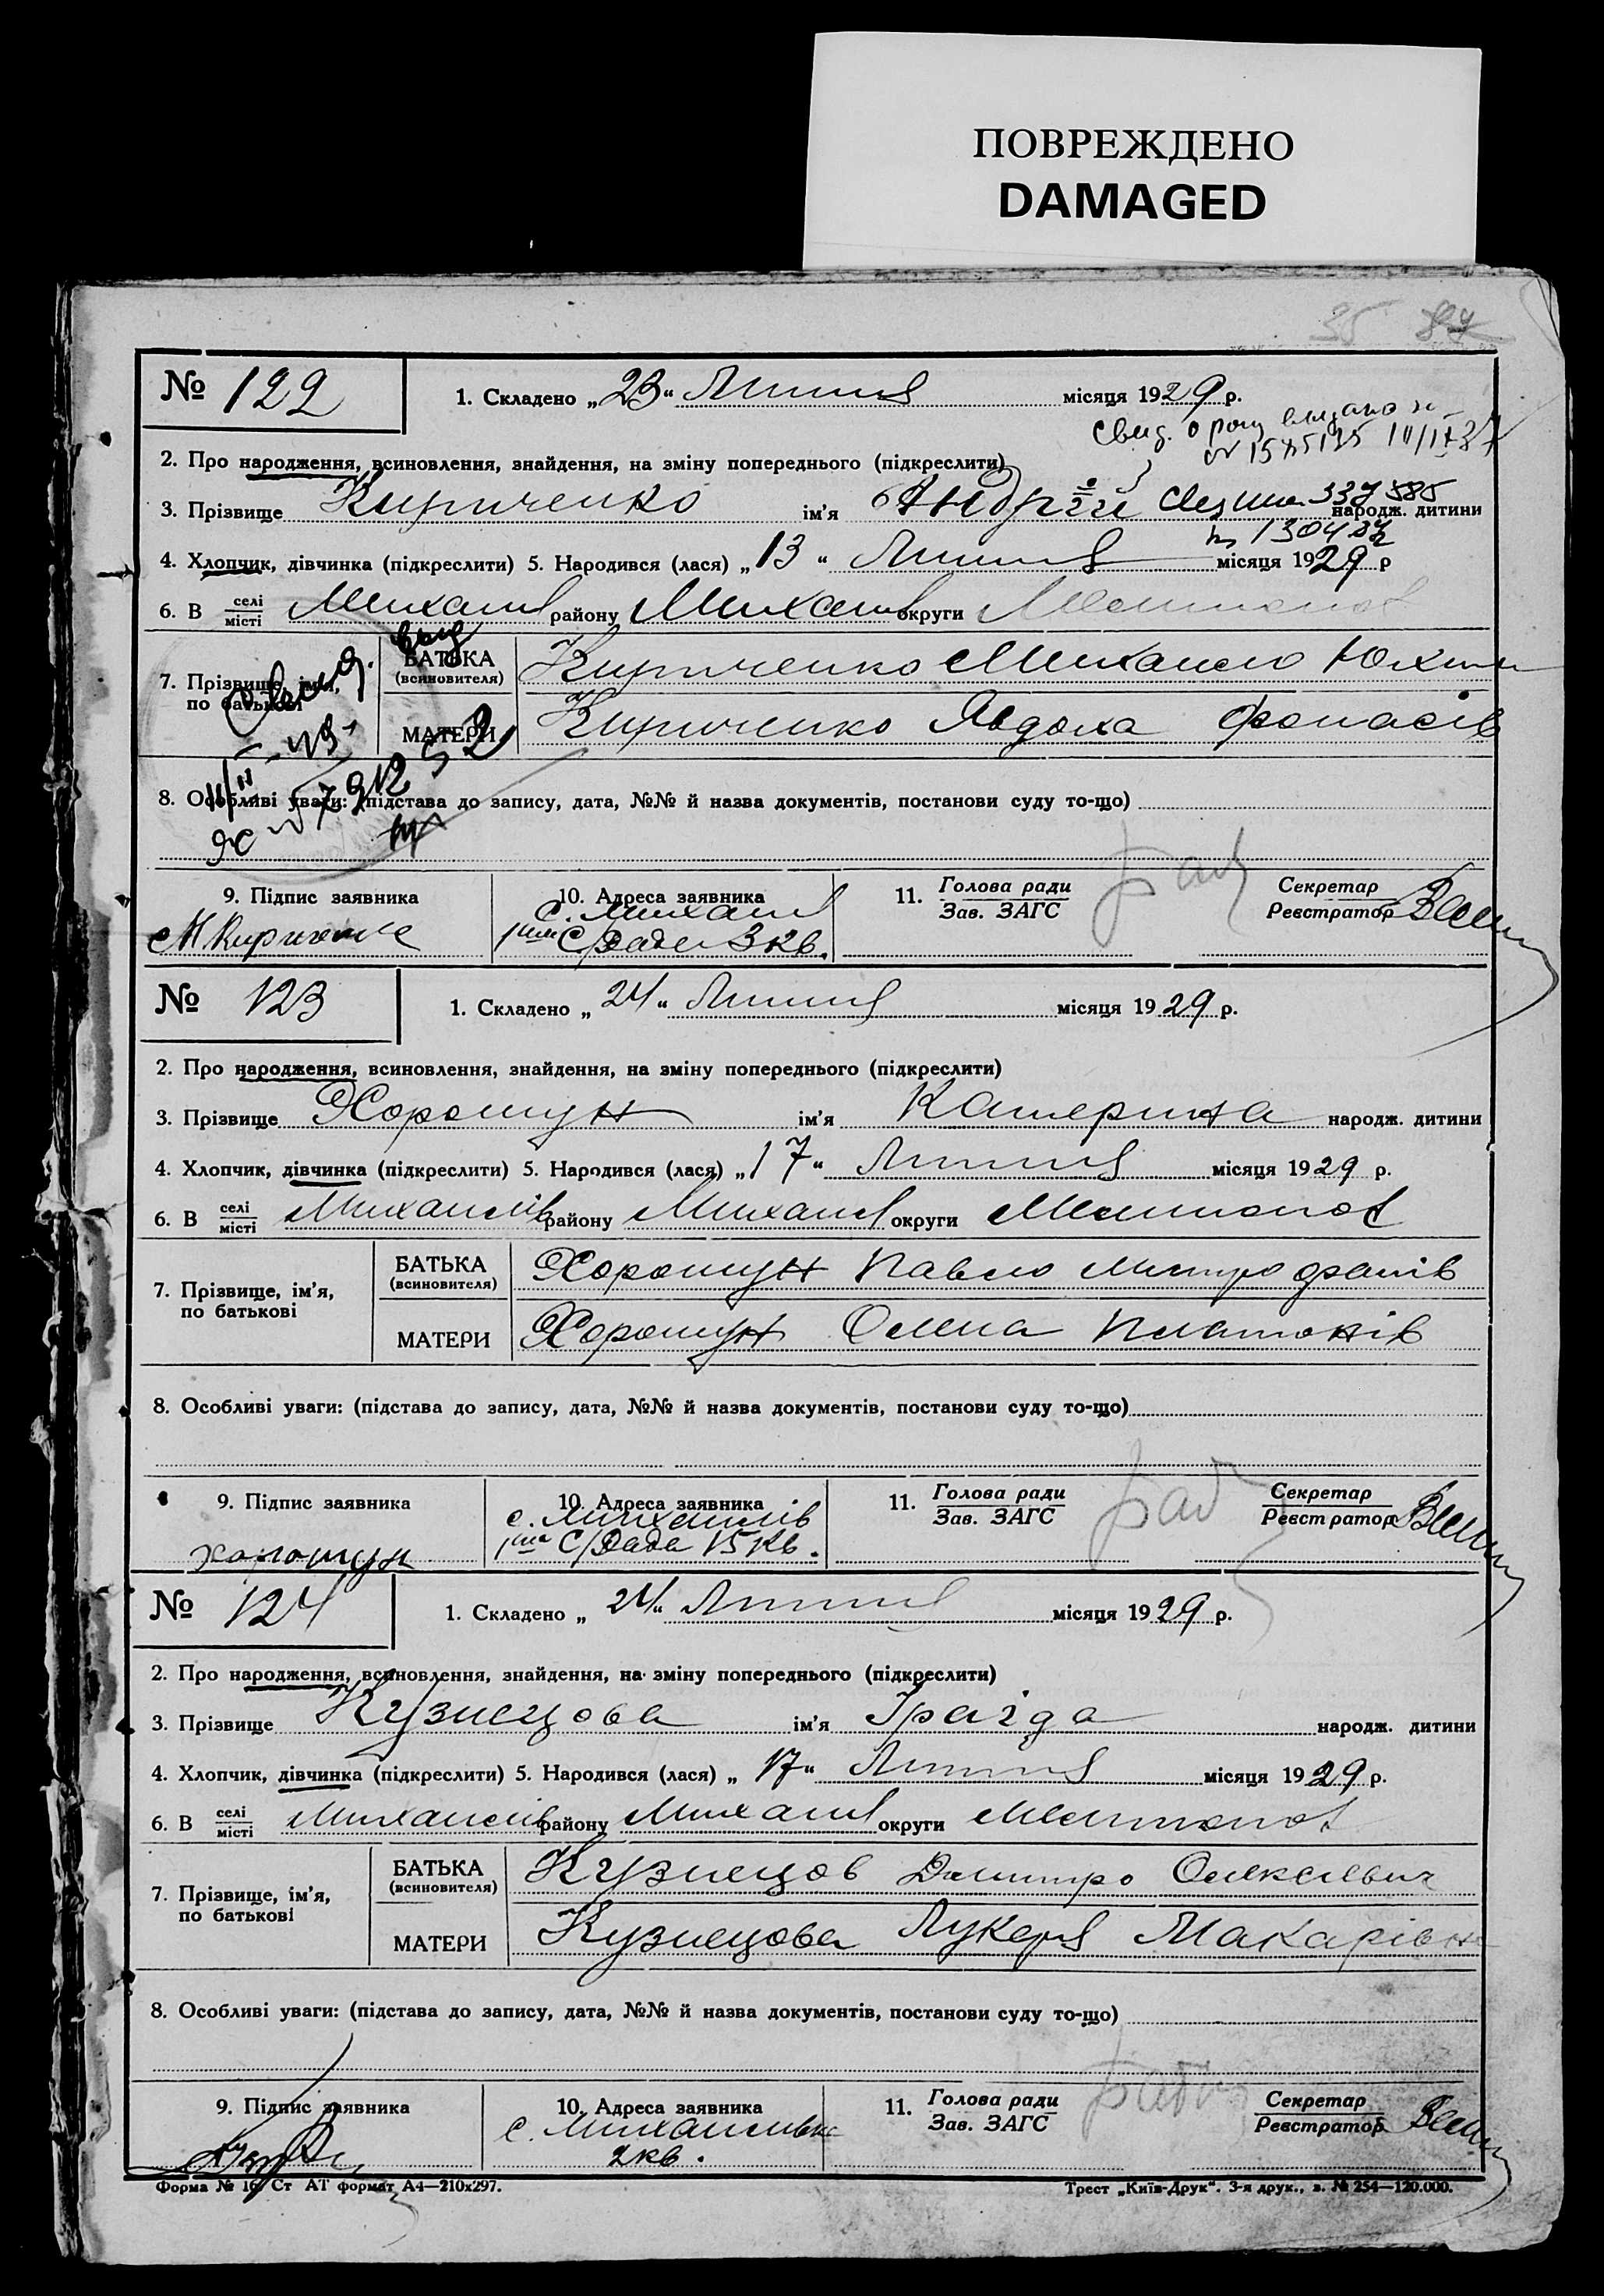 ПОВРЕЖДЕНО
DAMAGED
35
№ 122
1. Складено „23“ Липня місяця 1929 р.
2. Про народження, всиновлення, знайдення, на зміну попереднього (підкреслити)
3. Прізвище Кириченко ім'я Андрій народж. дитини
4. Хлопчик, дівчинка (підкреслити) 5. Народився (лася) „13“ Липня місяця 1929 р
6. В селі/місті Михайлів району Михайлів округи Мелітопол
7. Прізвище, ім'я, по батькові
БАТЬКА (всиновителя) Кириченко Михайло Юхим
МАТЕРИ Кириченко Явдоха Фопасів
8. Особливі уваги: (підстава до запису, дата, №№ й назва документів, постанови суду то-що)
9. Підпис заявника
10. Адреса заявника
11. Голова ради
Зав. ЗАГС
Секретар
Реєстратор
М Кириченко
с. Михайлів
1ша С/Рада 3 кв.
№ 123
1. Складено „24“ Липня місяця 1929 р.
2. Про народження, всиновлення, знайдення, на зміну попереднього (підкреслити)
3. Прізвище Хорошун ім'я Катерина народж. дитини
4. Хлопчик, дівчинка (підкреслити) 5. Народився (лася) „17“ Липня місяця 1929 р.
6. В селі/місті Михайлів району Михайлів округи Мелітопол
7. Прізвище, ім'я, по батькові
БАТЬКА (всиновителя) Хорошун Павло Митрофанів
МАТЕРИ Хорошун Олена Платонів
8. Особливі уваги: (підстава до запису, дата, №№ й назва документів, постанови суду то-що)
9. Підпис заявника
10. Адреса заявника
11. Голова ради
Зав. ЗАГС
Секретар
Реєстратор
хорошун
с. Михайлів
1ша С/Рада 15 кв.
№ 124
1. Складено „24“ Липня місяця 1929 р.
2. Про народження, всиновлення, знайдення, на зміну попереднього (підкреслити)
3. Прізвище Кузнецова ім'я Іраїда народж. дитини
4. Хлопчик, дівчинка (підкреслити) 5. Народився (лася) „17“ Липня місяця 1929 р.
6. В селі/місті Михайлів району Михайлів округи Мелітопол
7. Прізвище, ім'я, по батькові
БАТЬКА (всиновителя) Кузнецов Дмитро Олексієвич
МАТЕРИ Кузнецова Лукеря Макарівн
8. Особливі уваги: (підстава до запису, дата, №№ й назва документів, постанови суду то-що)
9. Підпис заявника
10. Адреса заявника
11. Голова ради
Зав. ЗАГС
Секретар
Реєстратор
с. Михайлівка
2 кв.
Форма № 16 Ст АТ формат А4—210х297.
Трест „Київ-Друк“. 3-я друк., з. № 254—120.000.